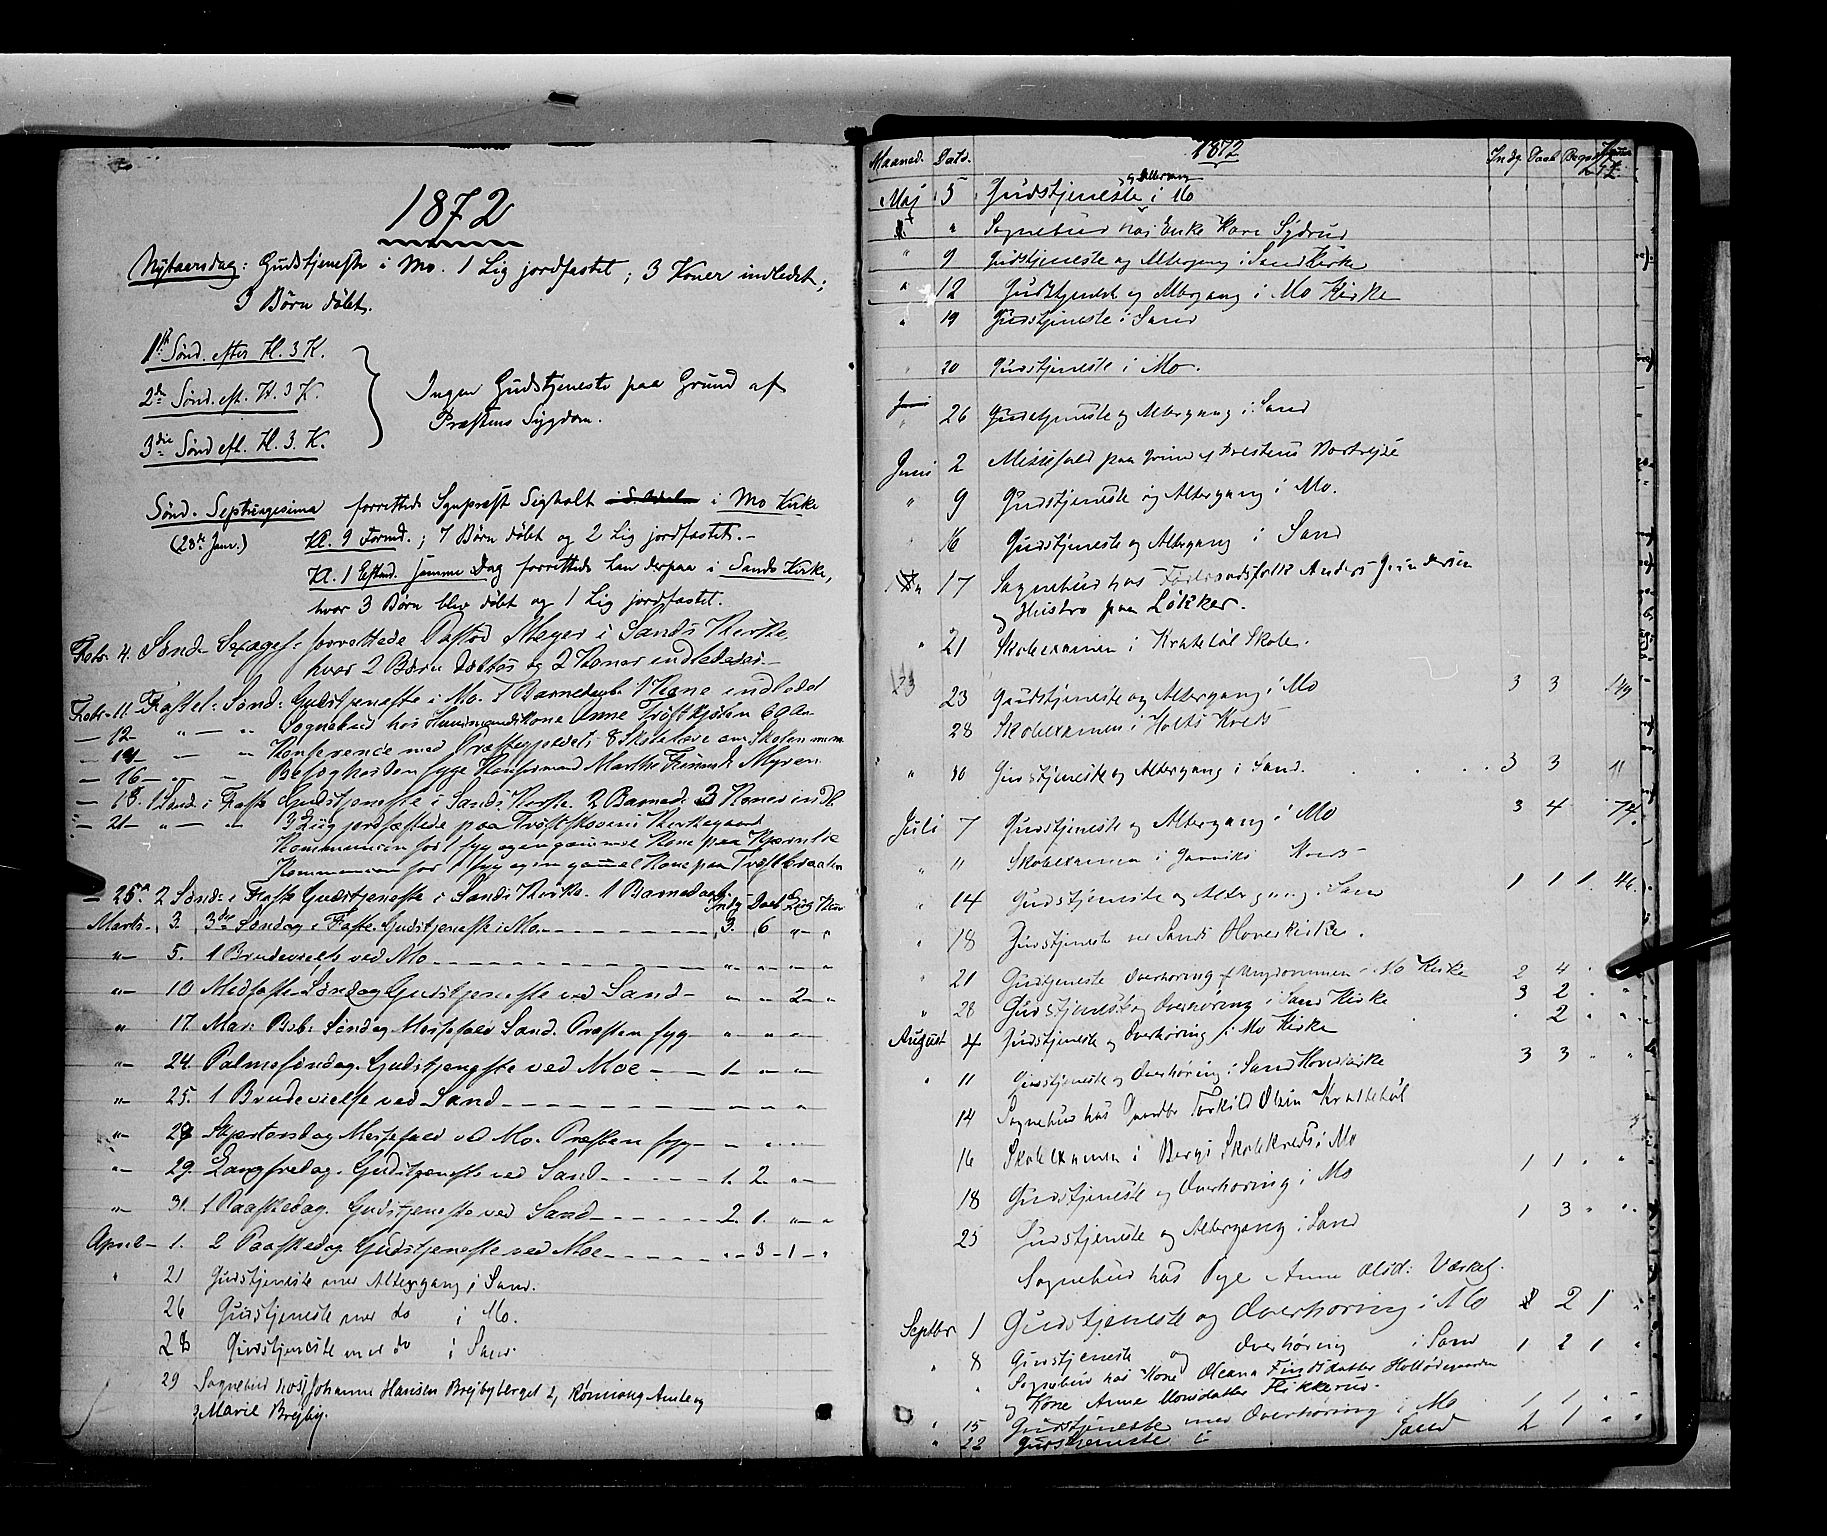 1872
Nytaarsdag: Gudstjeneste i Mo. 1 Lig jordfæstet; 3 Koner indledet;
3 Børn døbt.
1ste Sønd. efter H. 3 K.
2den Sønd. eft. H. 3 K.
3die Sønd. eft. H. 3. K.
Ingen Gudstjeneste paa Grund af
Præstens Sygdom.
Sønd. Septuagesima forrettede Sognpræst Sigholt i Mo Kirke
(28de Janr.) Kl. 9 Formd.; 7 Børn døbt og 2 Lig jordfæstet.-
Kl. 1 Eftmd. samme Dag forrettede han derpaa i Sands Kirke,
hvor 3 Børn blev døbt og 1 Lig jordfæstet.
Febr. 4. Sønd. Sexages. forrettede Pastor Meyer i Sands Kirke,
hvor 2 Børn døbtes og 2 Koner indledes.-
Febr. 11 Fastel. Sønd. Gudstjeneste i Mo. 1 Barnedaab 1 Kone indledet
— 12 " — " Sognebud hos Huusmandskone Anne
— 14 — " Konference med Præstegjeldets 8 Skolelærere om Skolen m.m.
— 16 — " — Besøg hos den syge Konfirmand Marthe Myren
— 18. 1 Sønd. i Faste Gudstjeneste i Sands Kirke. 2 Barned. 3 Koner indl.
— 21 — " — " 3 Liig jordfæstede paa Kirkegaard
Kommunion for 1 syg og en gammel Kone paa
Kommunion for 1 syg og en gammel Kone paa
— 25de 2 Sønd. i Faste Gudstjeneste i Sands Kirke. 1 Barnedaab.
Indg. Daab Liig
Marts 3. 3die Søndag i Faste. Gudstjeneste i Mo 3. 6 " "
" 5. 1 Brudevielse ved Mo " " " "
" 10 Midfaste Søndag Gudstjeneste ved Sand " " 2 "
" 17. Mar. Beb. Søndag Messefald Sand. Præsten syg " " "
" 24. Palmesøndag. Gudstjeneste ved Moe 1 " "
" 25. 1 Brudevielse ved Sand
" 28 Skjærtorsdag Messefald ved Mo. Præsten syg
" 29. Langfredag. Gudstjeneste ved Sand 1. 2. "
" 31. 1 Paaskedag. Gudstjeneste ved Sand 2. 1. " "
April 1. 2 Paaskedag Gudstjeneste ved Moe " 3 1 "
" 21 Gudstjeneste med Altergang i Sand.
26 Gudstjeneste med do i Mo.
28 Gudstjeneste med do i Sand.
29 Sognebud hos Johanne Hansen Brejbyberget
Marie Brejby.
1872
Maaned. Dato. Indg. Daab Begr.
og Altergang
Maj 5 Gudstjeneste i Mo
" Sognebud hos Enke Kari Sydrud
" 9 Gudstjeneste og Altergang i Sand Kirke
" 12 Gudstjeneste og Altergang i Mo Kirke
" 19 Gudstjeneste i Sand
" 20 Gudstjeneste i Mo.
" 26 Gudstjeneste og Altergang i Sand
Juni 2 Messefald paa Grund af Præstens Bortrejse
" 9 Gudstjeneste og Altergang i Mo.
16 Gudstjeneste og Altergang i Sand
17 Sognebud hos Føderaadsfolk Anders Gundersen
og Hustro paa Løkker.
" 21 Skoleexamen i Kratebøl Skole.
23 Gudstjeneste og Altergang i Mo 3 3 149
28 Skoleexamen i Holts Kreds
" 30 Gudstjeneste og Altergang i Sand. 3 3 11
Juli 7 Gudstjeneste og Altergang i Mo 3 4 74.
" 11 Skoleexamen i Kreds
" 14 Gudstjeneste og Altergang i Sand 1 1 1. 46.
" 18 Gudstjeneste ved Sands Hovedkirke.
" 21 Gudstjeneste Overhøring af Ungdommen i Mo Kirke 2 4
" 28 Gudstjeneste og Overhøring i Sand Kirke 3 2 " "
August 4 Gudstjeneste og Overhøring i Mo Kirke 2 "
" 11 Gudstjeneste og Overhøring i Sand Hovedkirke 3 3 " "
14 Sognebud hos Torkild Olsen Krattebøl
16 Skoleexamen i Bergs Skolekreds i Mo
18 Gudstjeneste og Overhøring i Mo 1 1 " "
25 Gudstjeneste og Altergang i Sand 1 3 " "
Sognebud hos Pige Anne Værket.
Septbr 1 Gudstjeneste og Overhøring i Mo 2 1
" 8 Gudstjeneste og Overhøring i Sand 1 2 1 "
" Sognebud hos Kone Oleana Findsdatter
og Kone Anne Monsdatter Flikkerud.
" 15 Gudstjeneste med Overhøring i Mo 1 1 "
" 22 Gudstjeneste i Sand 2 1 " "